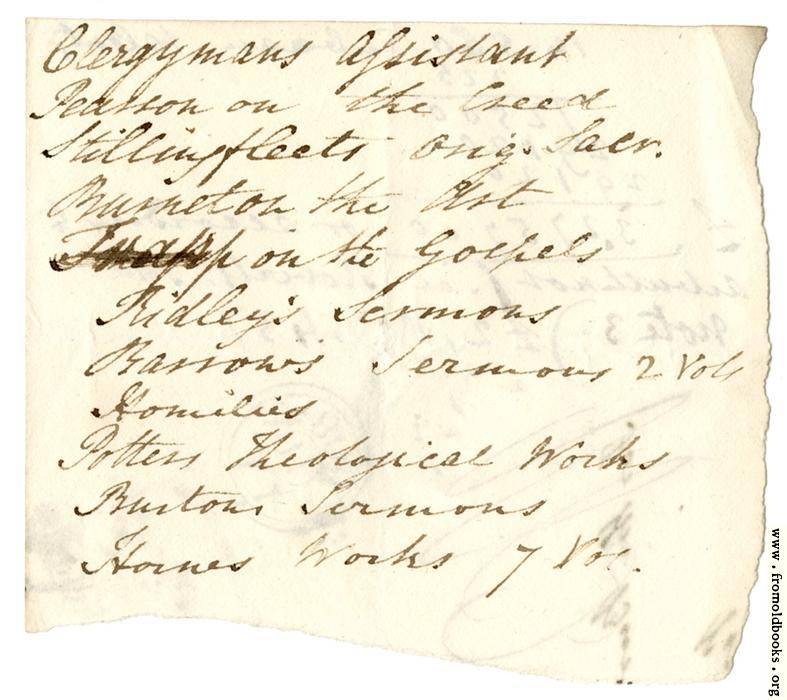 Clergymans Assistant
Pearson on the Creed
Stillingfleets Orig. Sacr.
Burnet on the Art
Trapp on the Gospels
Ridley's Sermons
Barrows Sermons 2 Vols
Homilies
Potters Theological Works
Burtons Sermons
Hornes Works 7 Vol.
www.fromoldbooks.org